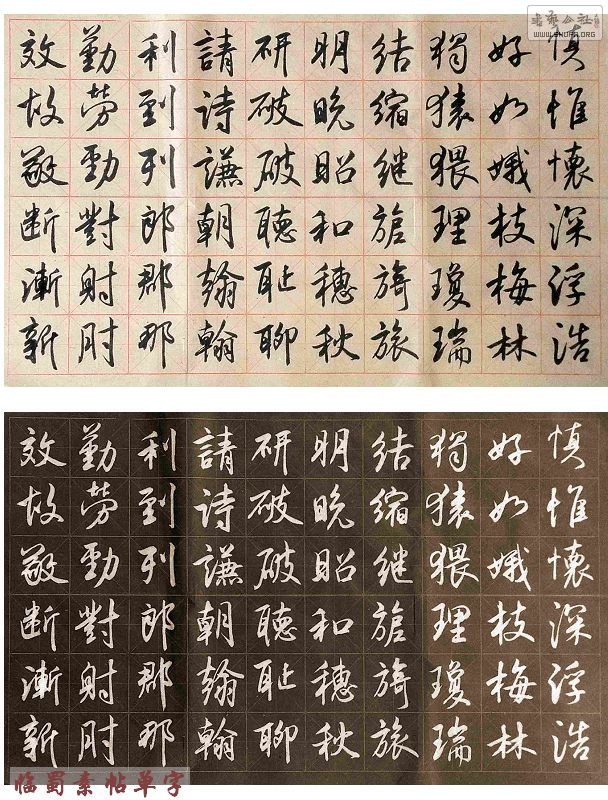 书艺公社
WWW.SHUFA.ORG
慎惟懷深浮浩
好如娥枝梅林
獨猿猥理瓊瑞
结缩继旖旅
明晚昭和穗秋
研破破聽耻聊
請詩謙朝翰翰
利到列郎郡那
勤勞勁對射肘
效故敬断漸新
慎惟懷深浮浩
好如娥枝梅林
獨猿猥理瓊瑞
结缩继旖旅
明晚昭和穗秋
研破破聽耻聊
請詩謙朝翰翰
利到列郎郡那
勤勞勁對射肘
效故敬断漸新
临蜀素帖单字